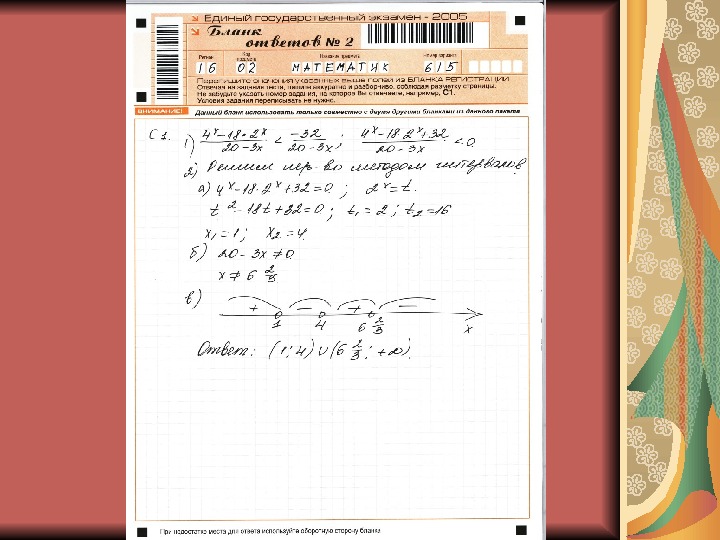 Единый государственный экзамен - 2005
Бланк
ответов № 2
Регион Код предмета Название предмета Номер варианта
16 02 МАТЕМАТИК 615
Перепишите значения указанных выше полей из БЛАНКА РЕГИСТРАЦИИ.
Отвечая на задания теста, пишите аккуратно и разборчиво, соблюдая разметку страницы.
Не забудьте указать номер задания, на которое Вы отвечаете, например, С1.
Условия задания переписывать не нужно.
ВНИМАНИЕ! Данный бланк использовать только совместно с двумя другими бланками из данного пакета
С1. 1) (4^x-18·2^x)/(20-3x) < (-32)/(20-3x); (4^x-18·2^x+32)/(20-3x) < 0.
2) Решим нер-во методом интервалов
а) 4^x-18·2^x+32=0; 2^x=t.
t^2-18t+32=0; t₁=2; t₂=16
x₁=1; x₂=4.
б) 20-3x≠0
x≠6 2/3
в)
+ - + -
1 4 6 2/3 x
Ответ: (1;4)∪(6 2/3; +∞).
При недостатке места для ответа используйте оборотную сторону бланка